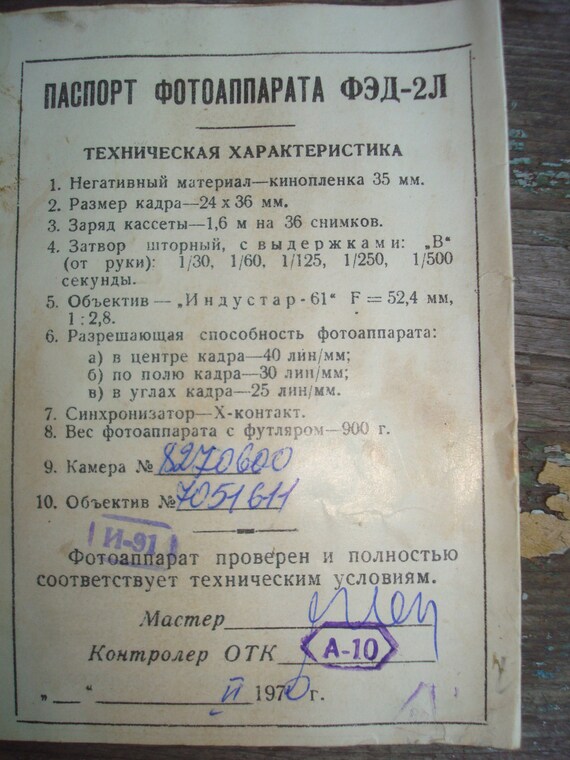 ПАСПОРТ ФОТОАППАРАТА ФЭД-2Л
ТЕХНИЧЕСКАЯ ХАРАКТЕРИСТИКА
1. Негативный материал—кинопленка 35 мм.
2. Размер кадра—24 х 36 мм.
3. Заряд кассеты—1,6 м на 36 снимков.
4. Затвор шторный, с выдержками: „В“
(от руки): 1/30, 1/60, 1/125, 1/250, 1/500
секунды.
5. Объектив — „Индустар-61“ F = 52,4 мм,
1 : 2,8.
6. Разрешающая способность фотоаппарата:
а) в центре кадра—40 лин/мм;
б) по полю кадра—30 лин/мм;
в) в углах кадра—25 лин/мм.
7. Синхронизатор—Х-контакт.
8. Вес фотоаппарата с футляром—900 г.
9. Камера № 8270600
10. Объектив № 7051611
И-91
Фотоаппарат проверен и полностью
соответствует техническим условиям.
Мастер
Контролер ОТК А-10
„ “ II 1970 г.